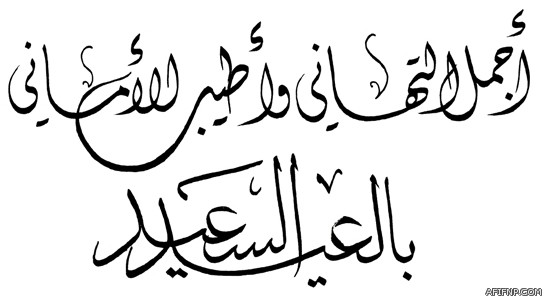 أجمل التهاني وأطيب الأماني
بالعيد السعيد
AFIFNP.COM